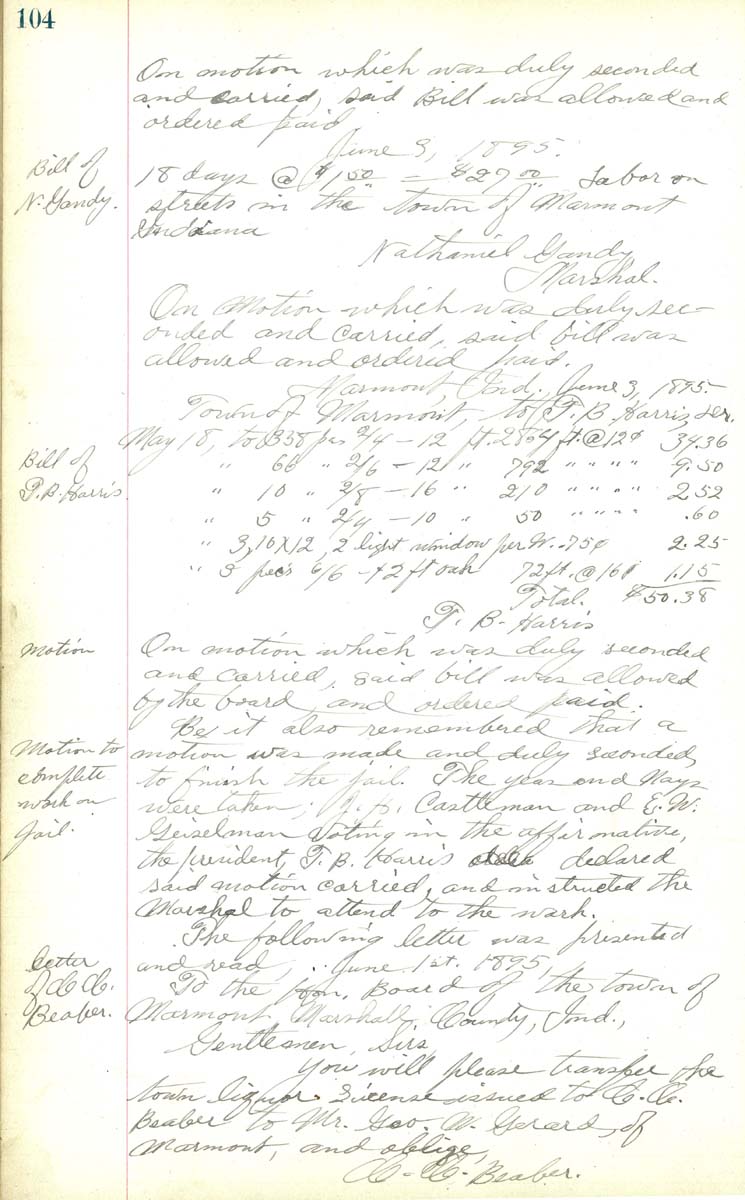 104
On motion which was duly seconded
and carried, said Bill was allowed and
ordered paid
June 3, 1895.
Bill of
N. Gandy.
18 days @ $1.50 = $27.00 Labor on
streets in the town of Marmont
Indiana
Nathaniel Gandy,
Marshal.
On Motion which was duly sec-
onded and carried, said bill was
allowed and ordered paid.
Marmont, Ind., June 3, 1895.
Town of Marmont, to T. B. Harris,
May 18, to 358 pcs 2/4 - 12 ft. 2864 ft. @ 12¢ 34.36
Bill of
T. B. Harris.
" 66 " 2/6 - 12 " 792 " " " " 9.50
" 10 " 2/8 - 16 " 210 " " " " 2.52
" 5 " 2/4 - 10 " 50 " " " " .60
" 3, 10X12, 2 light window per W. .75¢ 2.25
" 3 pecs 6/6 - 12 ft oak 72 ft. @ 16¢ 1.15
Total. $50.38
T. B. Harris
Motion
On motion which was duly seconded
and carried, said bill was allowed
by the board, and ordered paid.
Be it also remembered that a
Motion to
complete
work on
jail.
motion was made and duly seconded,
to finish the jail. The yeas and Nays
were taken; Castleman and E. W.
Geiselman Voting in the affirmative,
the president, T. B. Harris declared
said motion carried, and instructed the
Marshal to attend to the work.
The following letter was presented
letter
of C. C.
Beaber.
and read, .. June 1st. 1895,
To the Hon. Board of the town of
Marmont, Marshall County, Ind.,
Gentlemen, Sirs,
You will please transfer the
town liquor License issued to C. C.
Beaber to Mr. Geo. W. Gerard, of
Marmont, and oblige,
C. C. Beaber.